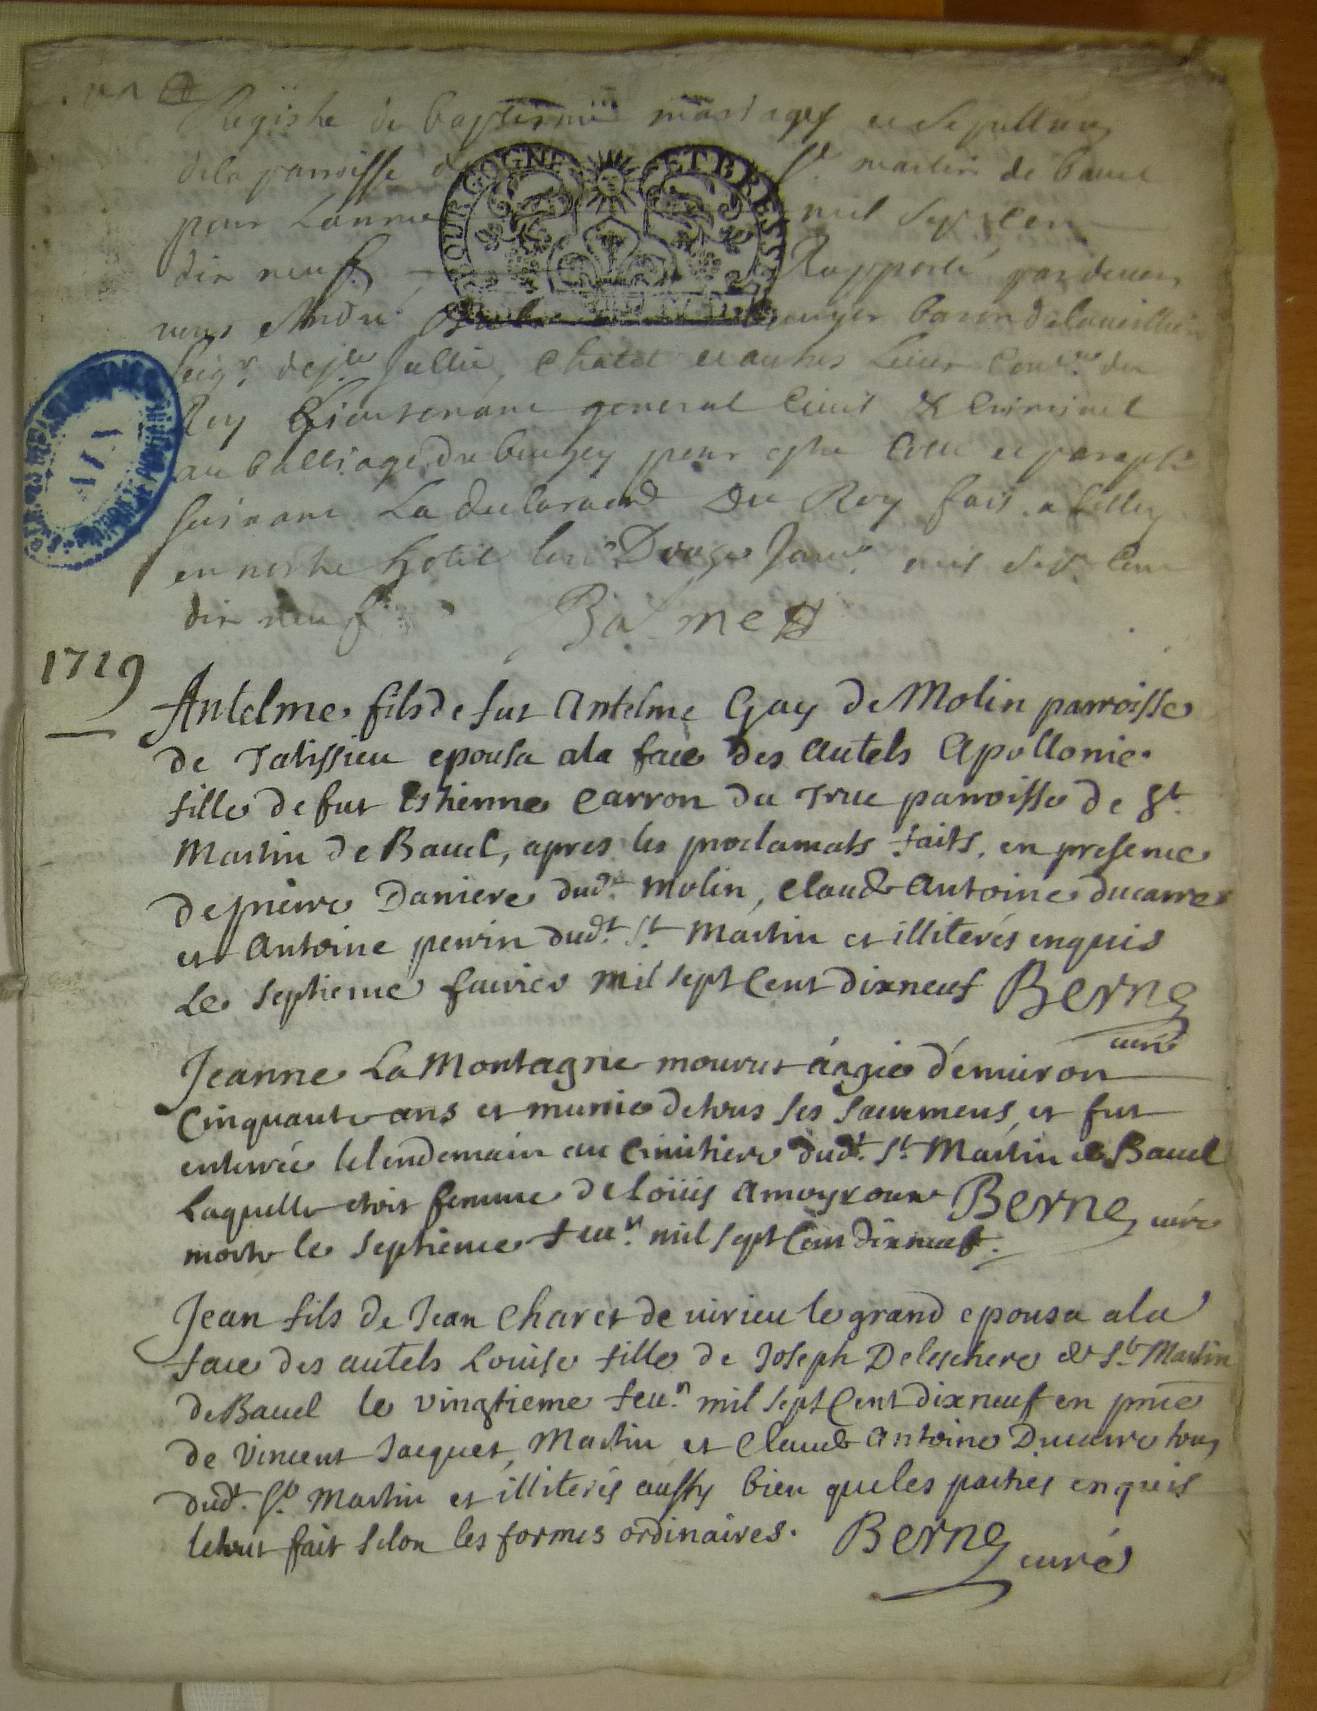 Registre de baptesme mariages et sepultures
dela parroisse de St martin de bavel
pour Lannee mil sept cent
dix neuf Rapporté pardevant
nous André baron
seigr. Chatel et autres Lieux Conr. du
Roy Lieutenant general Civil & Criminel
au balliage du bugey pour estre Cotté et paraphé
suivant La declaraon Du Roy fait a belley
en nostre hotel le Douze Janr. mil sept Cent
dix neuf Balme
BOURGOGNE ET BRESSE
1719
Antelme fils de fut Antelme Gay de Molin parroisse
de Talissieu epousa ala face des autels Apollonie
fille de fut Estienne Carron du Truc parroisse de St
Martin de Bavel, apres les proclamats faits, en presence
de pierre Daniere dudt. Molin, Claude Antoine ducarre
et Antoine perrin dudt. St Martin et illiterés enquis
Le septieme favrier mil sept Cent dixneuf Berne
curé
Jeanne La Montagne mourut ángée d'environ
Cinquante ans et munie detous ses sacremens, et fut
enterrée lelendemain au Cimitiere dudt. St. Martin de Bavel
Laquelle etoit femme de Loüis Amoyroux Berne curé
morte le septieme feur. mil sept Cent dixneuf.
Jean fils de Jean Charet de virieu le grand epousa ala
face des autels Louise fille de Joseph Deleschere de St Martin
de Bavel le vingtieme feur. mil sept Cent dixneuf en pnce
de Vincent Jacquet, Martin et Claude Antoine Ducarre tous
dudt. St. Martin et illiterés aussy bien queles parties enquis
letout fait selon les formes ordinaires. Berne curé